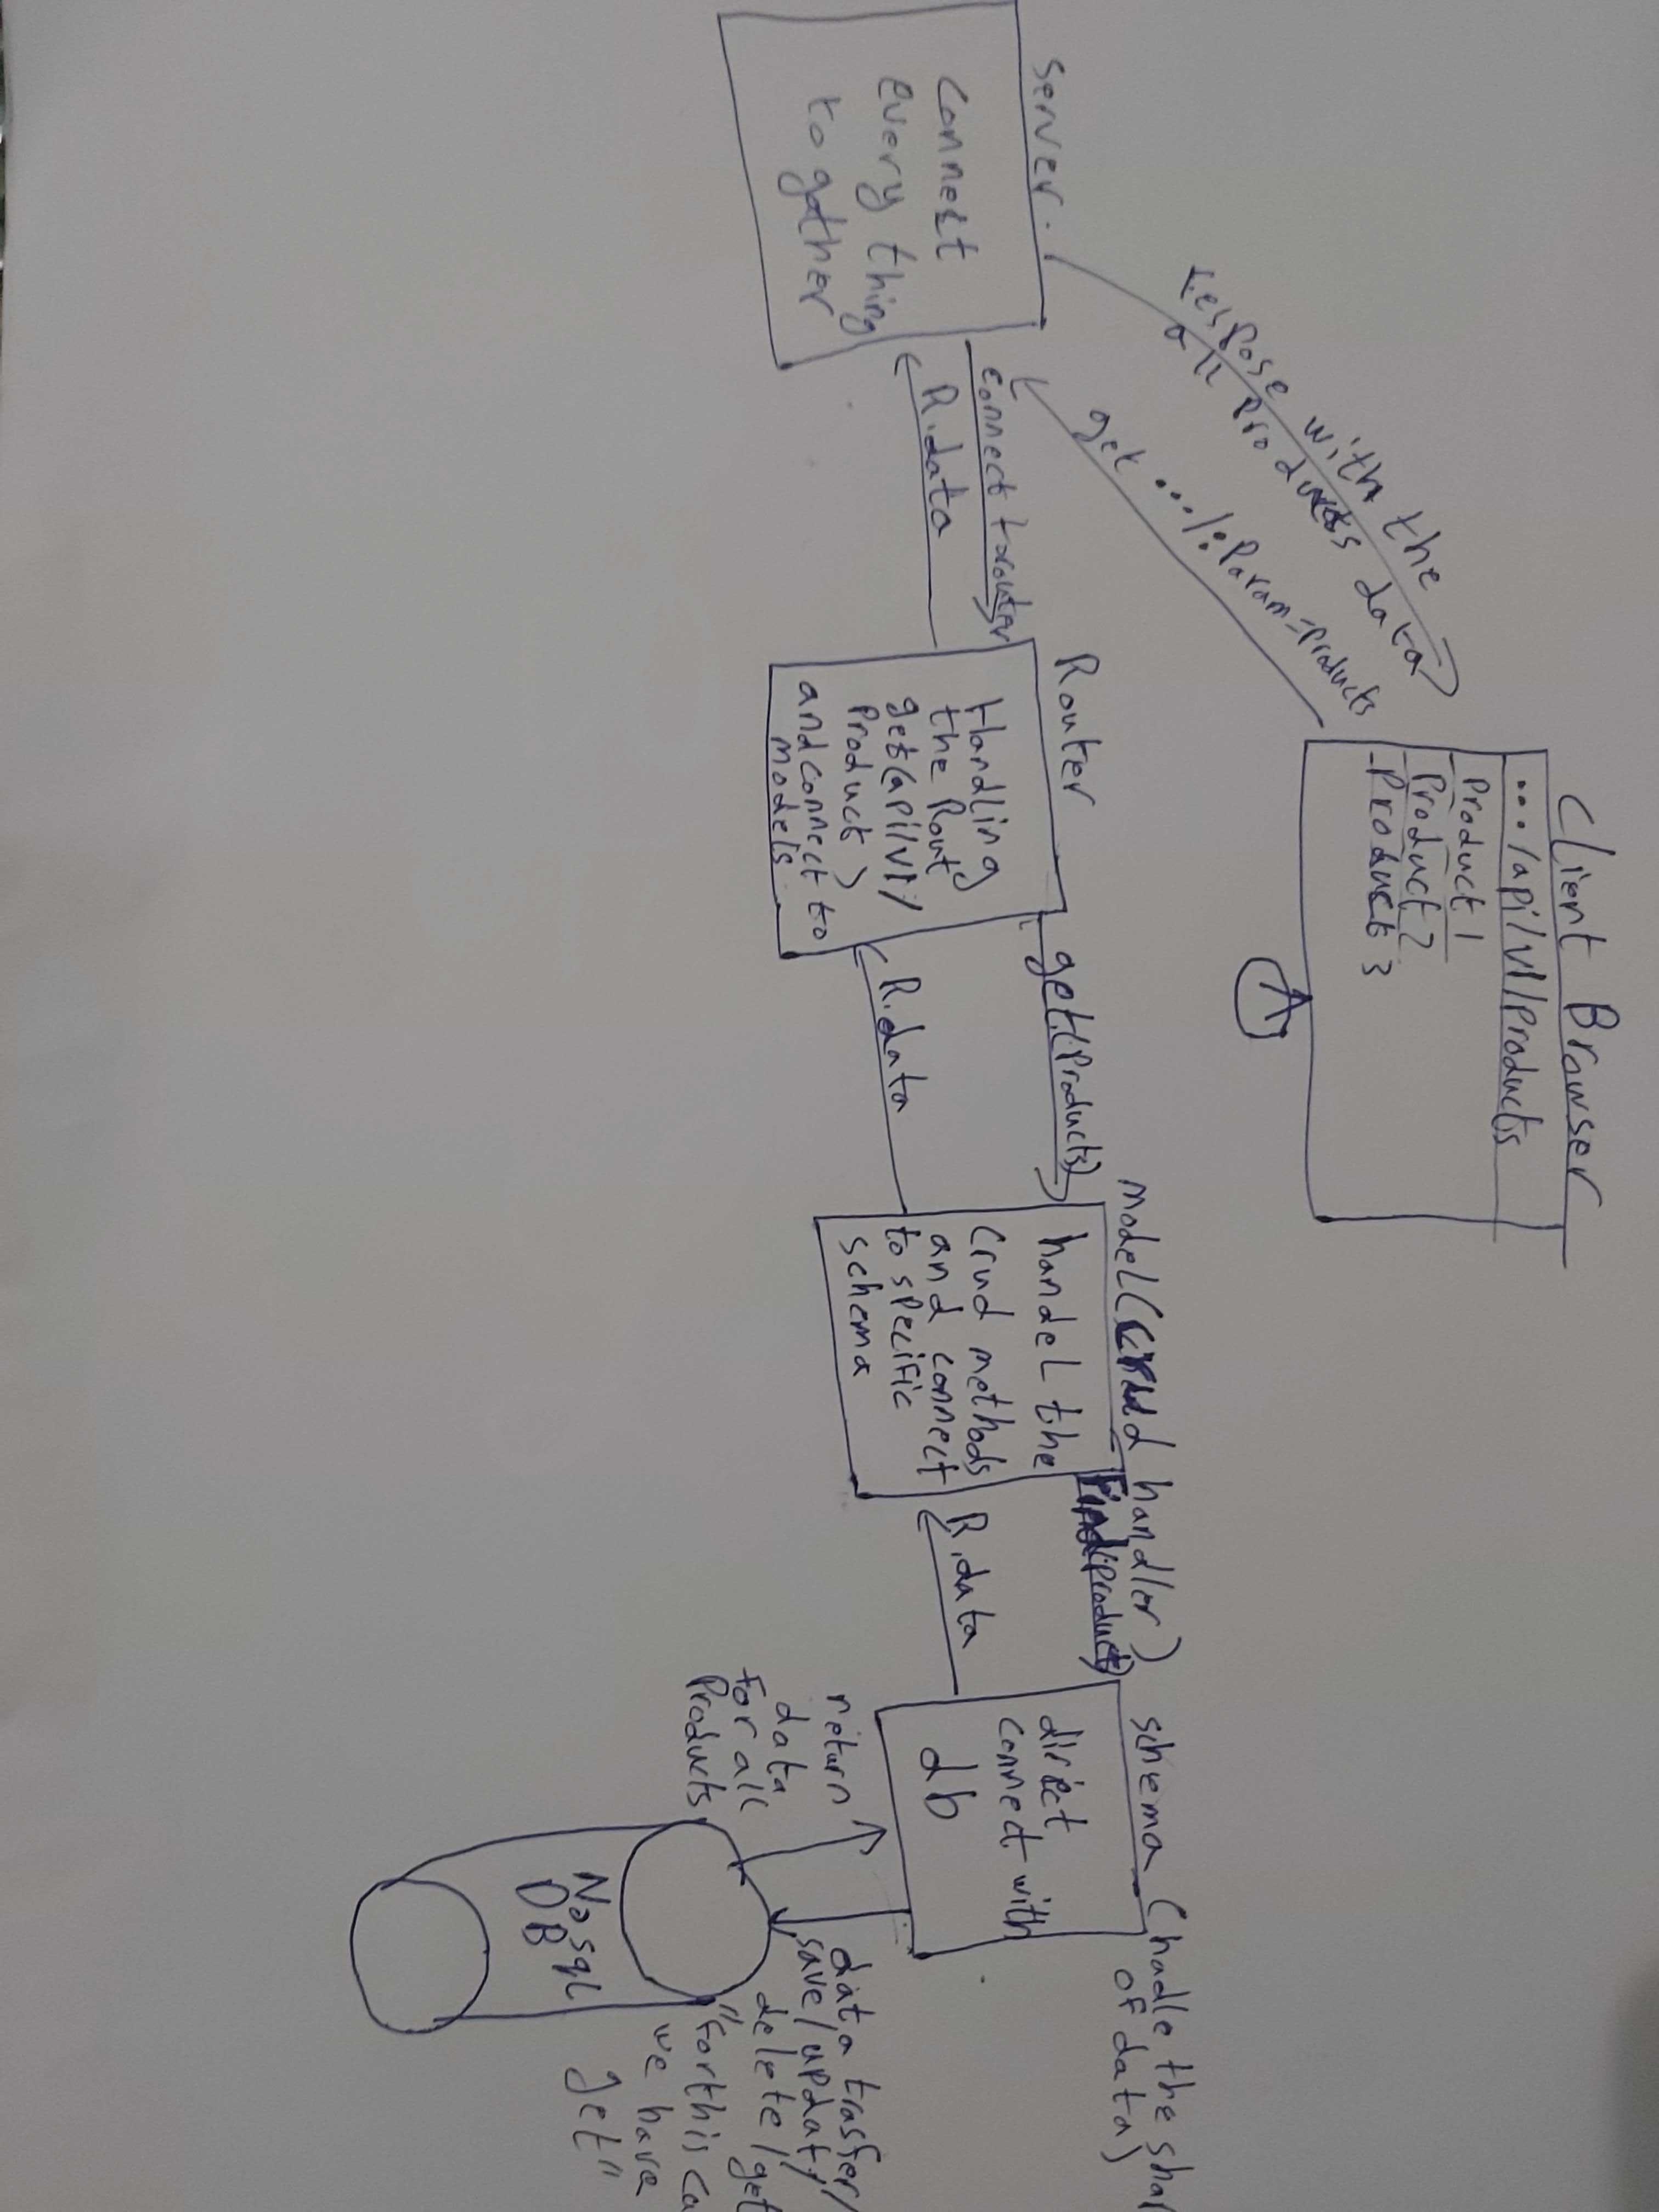 Client Browser
.../api/v1/Products
- Product 1
- Product 2
- Product 3
respose with the
all products data
get .../:Param=Products
server.
connect
every thing
to gather
connect to router
R.data
Router
Handling
the Rout
get(api/v1/
Product)
and connect to
models
get(Products)
R.data
model(crud handler)
handel the
crud methods
and connect
to specific
schema
Find(Product)
R.data
schema (hadle the sha
of data)
direct
connect with
db
return
data
for all
Products
data trasfer/
save/updat/
delete/get
"forthis ca
we have
get"
No sql
DB